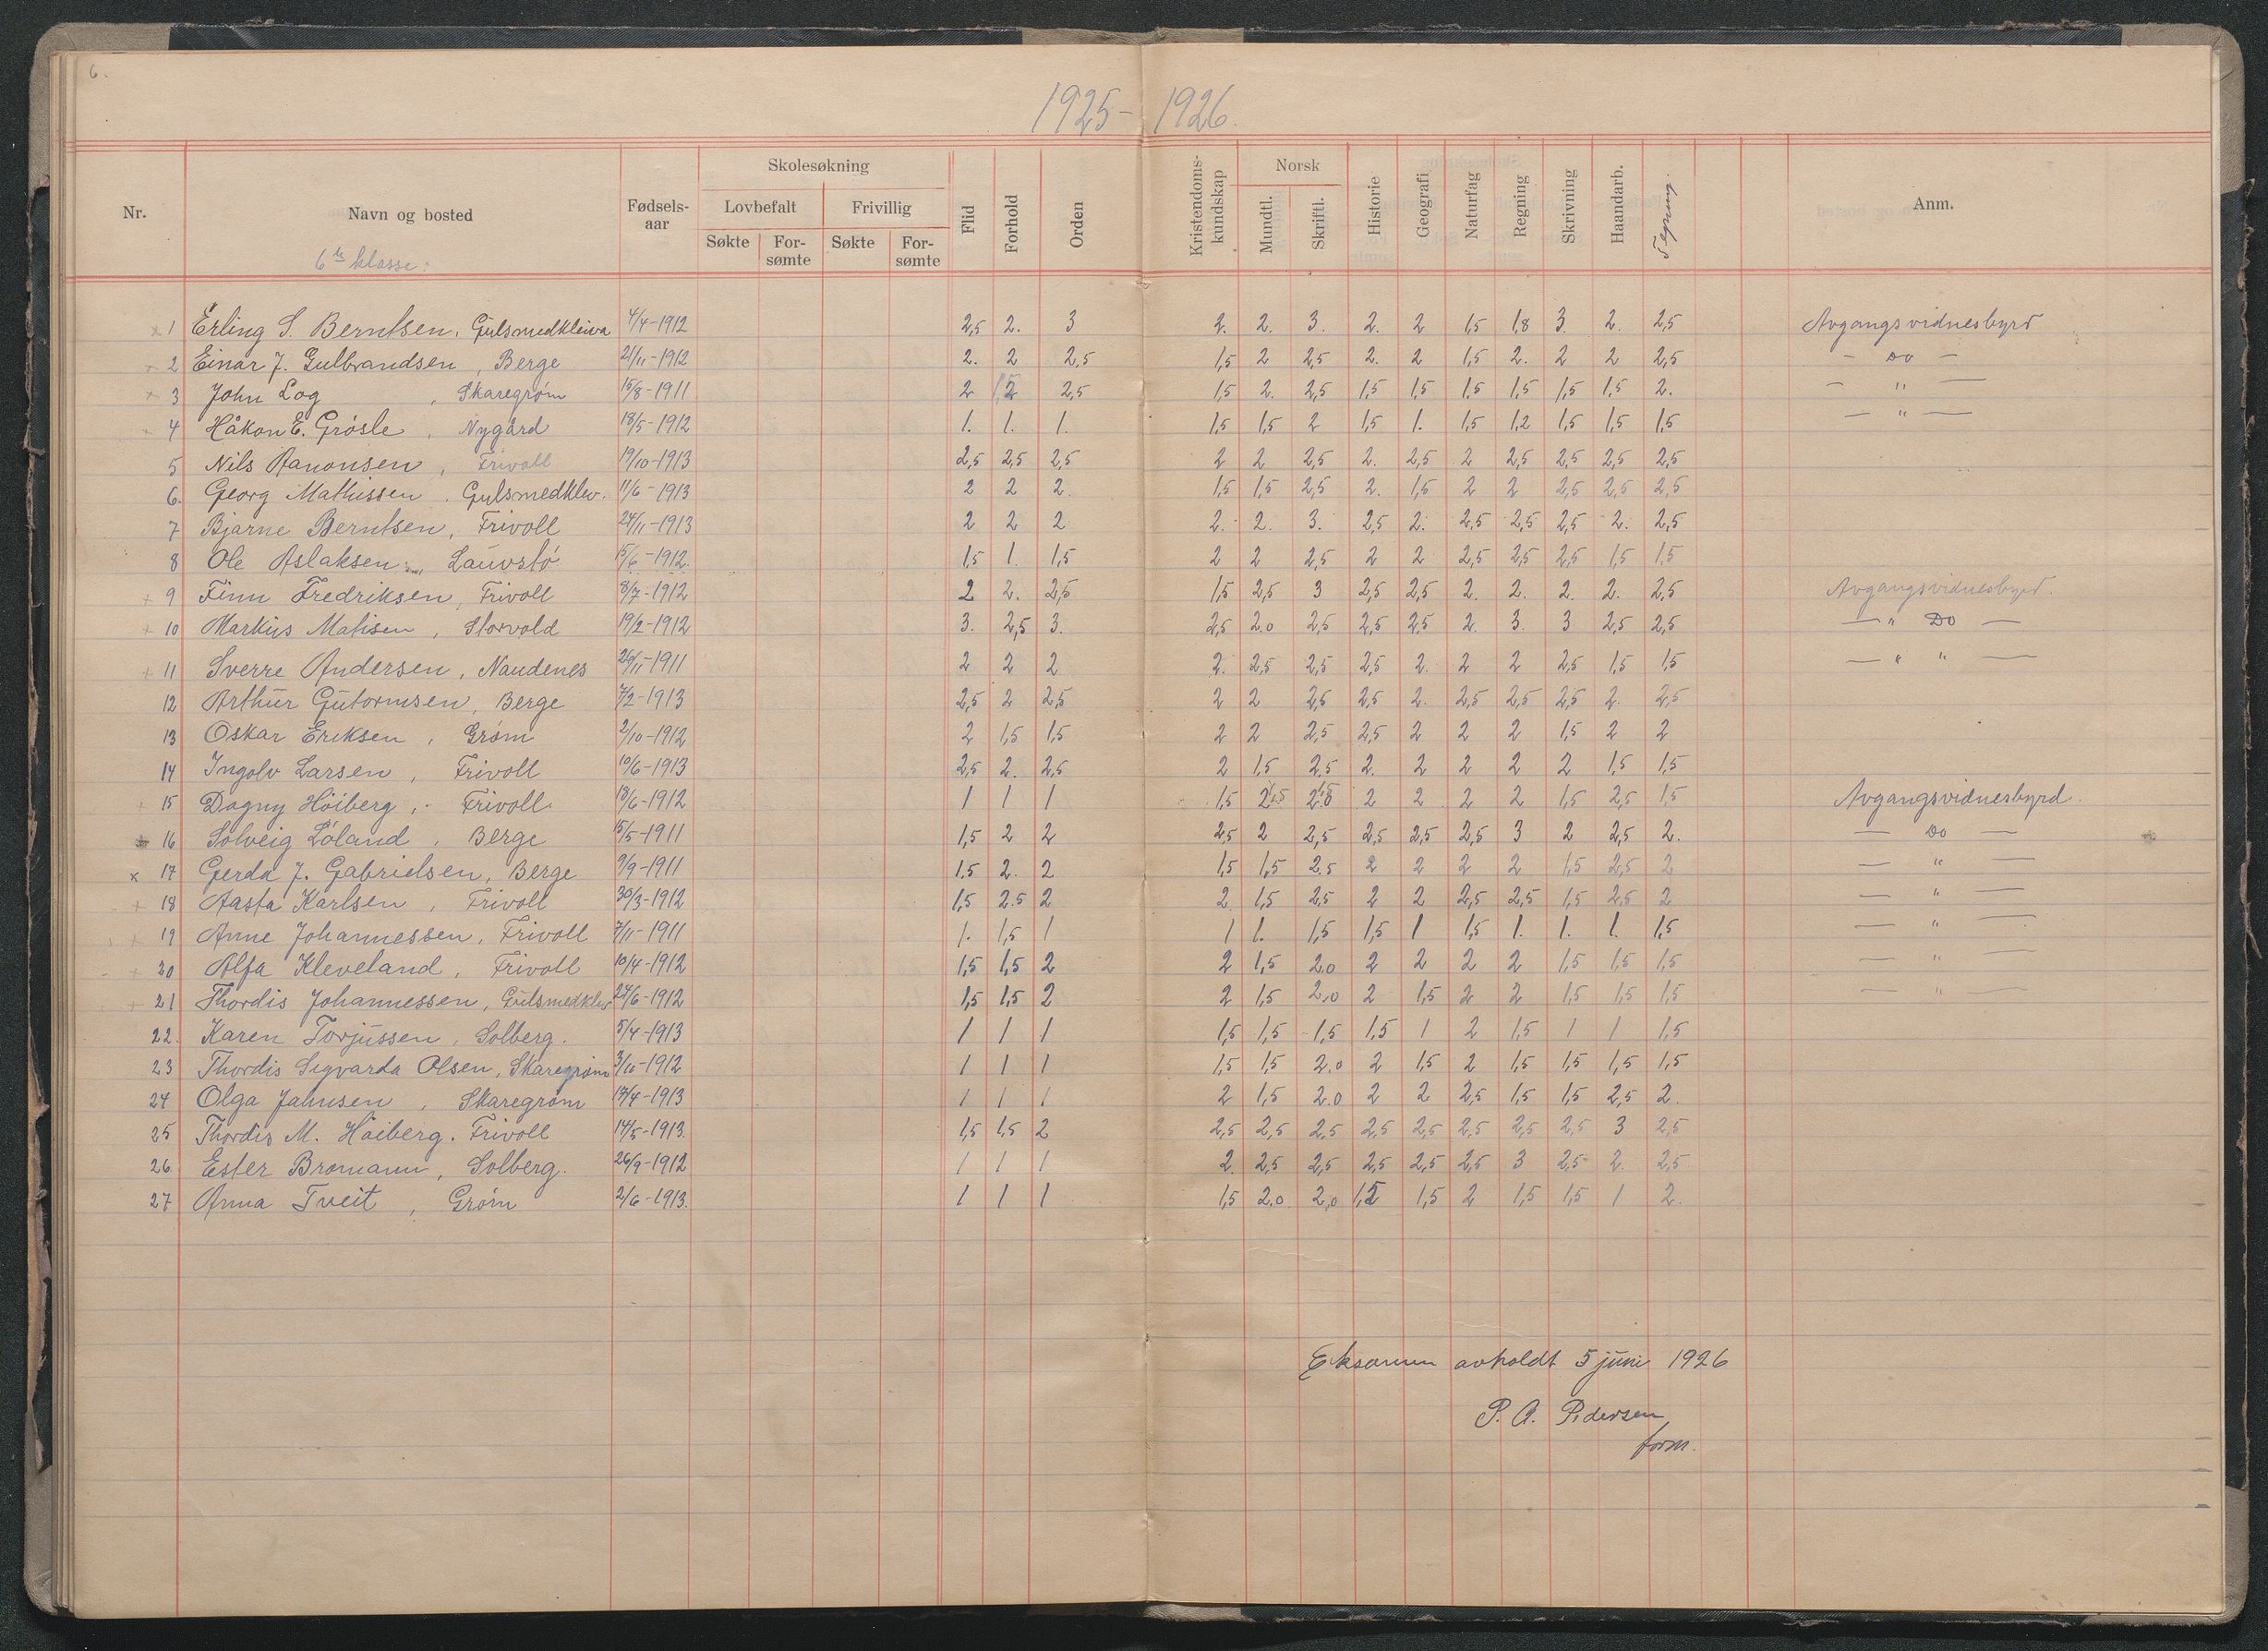 6.
1925-1926.
Nr. Navn og bosted Fødsels-aar Skolesøkning Lovbefalt Søkte For-sømte Frivillig Søkte For-sømte Flid Forhold Orden Kristendoms-kundskap Norsk Mundtl. Skriftl. Historie Geografi Naturfag Regning Skrivning Haandarb. Tegning. Anm.
6te klasse:
x 1 Erling S. Berntsen, Gulsmedkleiva 4/4-1912 2,5 2. 3 2. 2. 3. 2. 2 1,5 1,8 3. 2. 2,5 Avgangsvidnesbyrd
x 2 Einar J. Gulbrandsen, Berge 21/11-1912 2. 2 2,5 1,5 2 2,5 2. 2 1,5 2. 2 2 2,5 — Do —
x 3 John Log, Skaregrøm 15/8-1911 2 2,5 1,5 2. 2,5 1,5 1,5 1,5 1,5 1,5 1,5 2. — " —
x 4 Håkon E. Grösle, Nygård 18/5-1912 1. 1. 1. 1,5 1,5 2 1,5 1. 1,5 1,2 1,5 1,5 1,5 — " —
5 Nils Aanonsen, Frivoll 19/10-1913 2,5 2,5 2,5 2 2 2,5 2. 2,5 2 2,5 2,5 2,5 2,5
6. Georg Mathissen. Gulsmedklev. 11/6-1913 2 2 2. 1,5 1,5 2,5 2. 1,5 2 2 2,5 2,5 2,5
7 Bjarne Berntsen, Frivoll 24/11-1913 2 2 2 2. 2. 3. 2,5 2. 2,5 2,5 2,5 2. 2,5
8 Ole Aslaksen, Lauvstö 15/6-1912. 1,5 1. 1,5 2 2 2,5 2 2 2,5 2,5 2,5 1,5 1,5
+ 9 Finn Fredriksen, Frivoll 8/7-1912 2 2. 2,5 1,5 2,5 3 2,5 2,5 2. 2. 2. 2. 2,5 Avgangsvidnesbyrd.
+ 10 Markus Matisen, Storvold 19/2-1912 3. 2,5 3. 2,5 2.0 2,5 2,5 2,5 2. 3. 3 2,5 2,5 — " Do —
+ 11 Sverre Andersen, Naudenes 26/11-1911 2 2 2 2. 2,5 2,5 2,5 2. 2 2 2,5 1,5 1,5 — " " —
12 Arthur Gutormsen, Berge 7/2-1913 2,5 2 2,5 2 2 2,5 2,5 2. 2,5 2,5 2,5 2. 2,5
13 Oskar Eriksen, Grøm 2/10-1912 2 1,5 1,5 2 2 2,5 2,5 2 2 2 1,5 2 2
14 Ingolv Larsen, Frivoll 10/6-1913 2,5 2. 2,5 2 1,5 2.5 2. 2 2 2 2 1,5 1,5
+ 15 Dagny Höiberg, - Frivoll. 18/6-1912 1 1 1 1,5 2 2 2 2 1,5 2,5 1,5 Avgangsvidnesbyrd.
+ 16 Solveig Löland, Berge 15/5-1911 1,5 2 2 2,5 2 2,5 2,5 2,5 2,5 3 2 2,5 2. — Do —
x 17 Gerda J. Gabrielsen, Berge 9/9-1911 1,5 2. 2 1,5 1,5 2.5 2 2 2 2 1,5 2,5 2 — " —
+ 18 Aasta Karlsen, Frivoll 30/3-1912 1,5 2.5 2 2. 1,5 2,5 2 2 2,5 2,5 1,5 2,5 2 — " —
+ 19 Anne Johannessen, Frivoll 7/11-1911 1. 1,5 1 1 1. 1,5 1,5 1 1,5 1. 1. 1. 1,5 — " —
+ 20 Alfa Kleveland, Frivoll 10/4-1912 1,5 1,5 2 2 1,5 2.0 2 2 2 2 1,5 1,5 1,5 — " —
+ 21 Thordis Johannessen, Gulsmedklev 24/6-1912 1,5 1,5 2 2 1,5 2.0 2 1,5 2 2 1,5 1,5 1,5 — " —
22. Karen Torjussen, Solberg. 5/4-1913 1 1 1 1,5 1,5 1,5 1,5 1 2 1,5 1 1 1,5
23 Thordis Sigvarda Olsen, Skaregrøm 3/10-1912 1 1 1 1,5 1,5 2.0 2 1,5 2 1,5 1,5 1,5 1,5
24 Olga Jahnsen, Skaregrøm 17/4-1913 1 1 1 2 1,5 2.0 2 2 2,5 1,5 1,5 2,5 2.
25 Thordis M. Høiberg. Frivoll 14/5-1913. 1,5 1,5 2 2,5 2,5 2,5 2,5 2,5 2,5 2,5 2,5 3 2,5
26. Ester Bromann, Solberg. 26/9-1912 1 1 1 2. 2,5 2,5 2,5 2,5 2,5 3 2,5 2. 2,5
27 Anna Tveit, Grøm 2/6-1913. 1 1 1 1,5 2.0 2,0 1,5 1,5 2 1,5 1,5 1 2.
Eksamen avholdt 5 juni 1926
P. A. Pedersen
form.